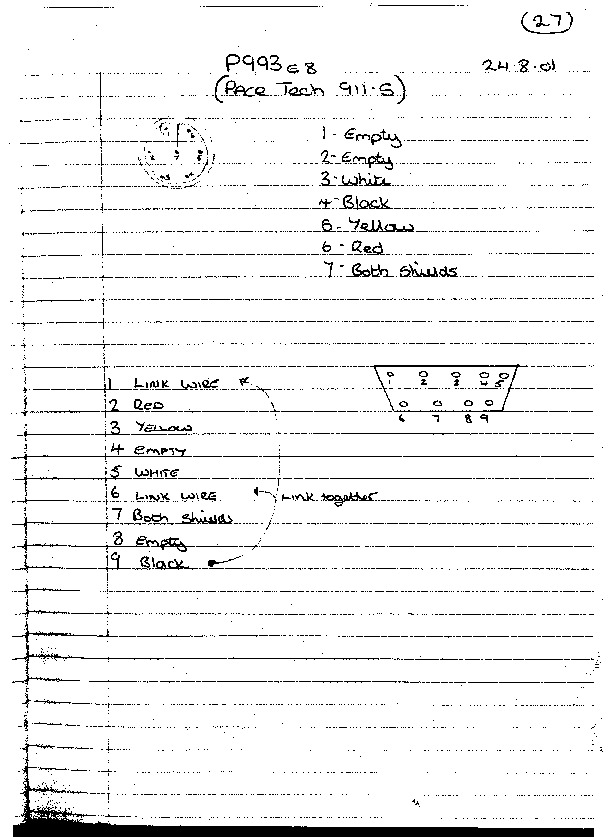 (27)
P993 G8 24.8.01
(Pace Tech 911-S)
1 - Empty
2 - Empty
3 - White
4 - Black
5 - Yellow
6 - Red
7 - Both Shields
1 2 3 4 5
6 7 8 9
1 LINK WIRE
2 RED
3 YELLOW
4 EMPTY
5 WHITE
6 LINK WIRE Link together
7 Both Shields
8 Empty
9 Black